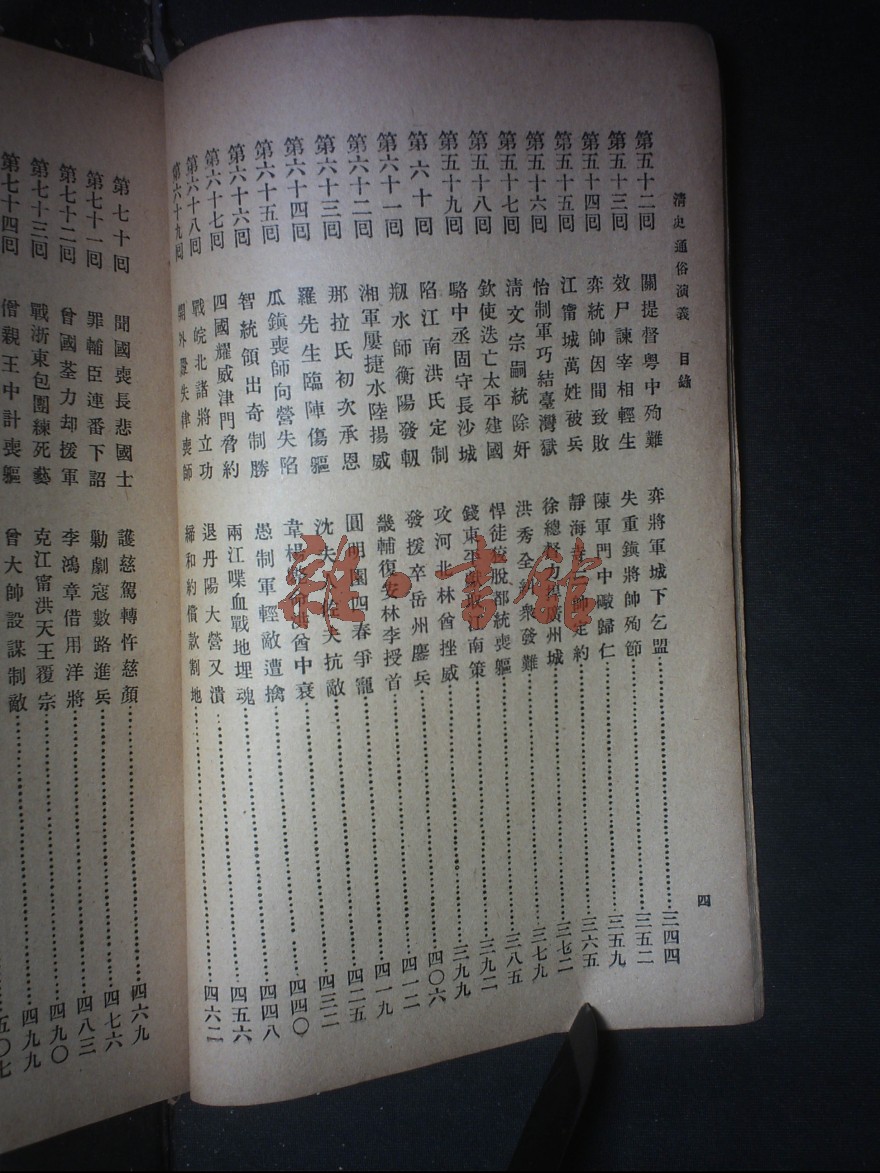 清史通俗演義 目錄 四
第五十二回 關提督粤中殉難 奕將軍城下乞盟 三四四
第五十三回 效尸諫宰相輕生 失重鎮將帥殉節 三五二
第五十四回 弈統帥因間致敗 陳軍門中礮歸仁 三五九
第五十五回 江甯城萬姓被兵 靜海寺三帥定約 三六五
第五十六回 怡制軍巧結臺灣獄 徐總督力捍廣州城 三七二
第五十七回 清文宗嗣統除奸 洪秀全糾衆發難 三七九
第五十八回 欽使迭亡太平建國 悍徒狡脫都統喪軀 三八五
第五十九回 駱中丞固守長沙城 錢東平獻取江南策 三九二
第六十回 陷江南洪氏定制 攻河北林酋挫威 三九九
第六十一回 剏水師衡陽發軔 發援卒岳州鏖兵 四〇六
第六十二回 湘軍屢捷水陸揚威 畿輔復安林李授首 四一二
第六十三回 那拉氏初次承恩 圓明園四春爭寵 四一九
第六十四回 羅先生臨陣傷軀 沈夫人佐夫抗敵 四二五
第六十五回 瓜鎮喪師向營失陷 韋楊斃命洪酋中衰 四三二
第六十六回 智統領出奇制勝 愚制軍輕敵遭擒 四四〇
第六十七回 四國耀威津門脅約 兩江喋血戰地埋魂 四四八
第六十八回 戰皖北諸將立功 退丹陽大營又潰 四五六
第六十九回 開外釁失律喪師 締和約償款割地 四六二
第七十回 聞國喪長悲國士 護慈駕轉忤慈顏 四六九
第七十一回 罪輔臣連番下詔 勦劇寇數路進兵 四七六
第七十二回 曾國荃力却援軍 李鴻章借用洋將 四八三
第七十三回 戰浙東包團練死藝 克江甯洪天王覆宗 四九〇
第七十四回 僧親王中計喪軀 曾大帥設謀制敵 四九九
五〇七
雜·書館